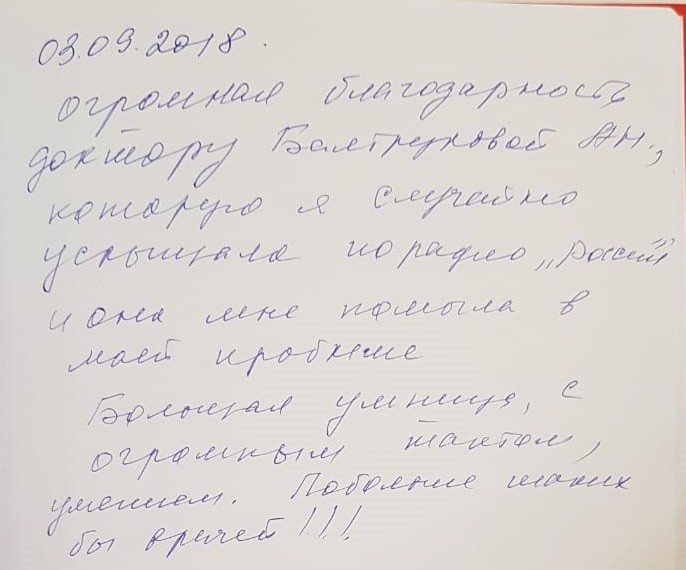 03.09.2018.
огромная благодарность
доктору Балтруковой АН.,
которую я случайно
услышала по радио „Россия”
и она мне помогла в
моей проблеме
Большая умница, с
огромным тактом,
умением. Побольше таких
бы врачей!!!